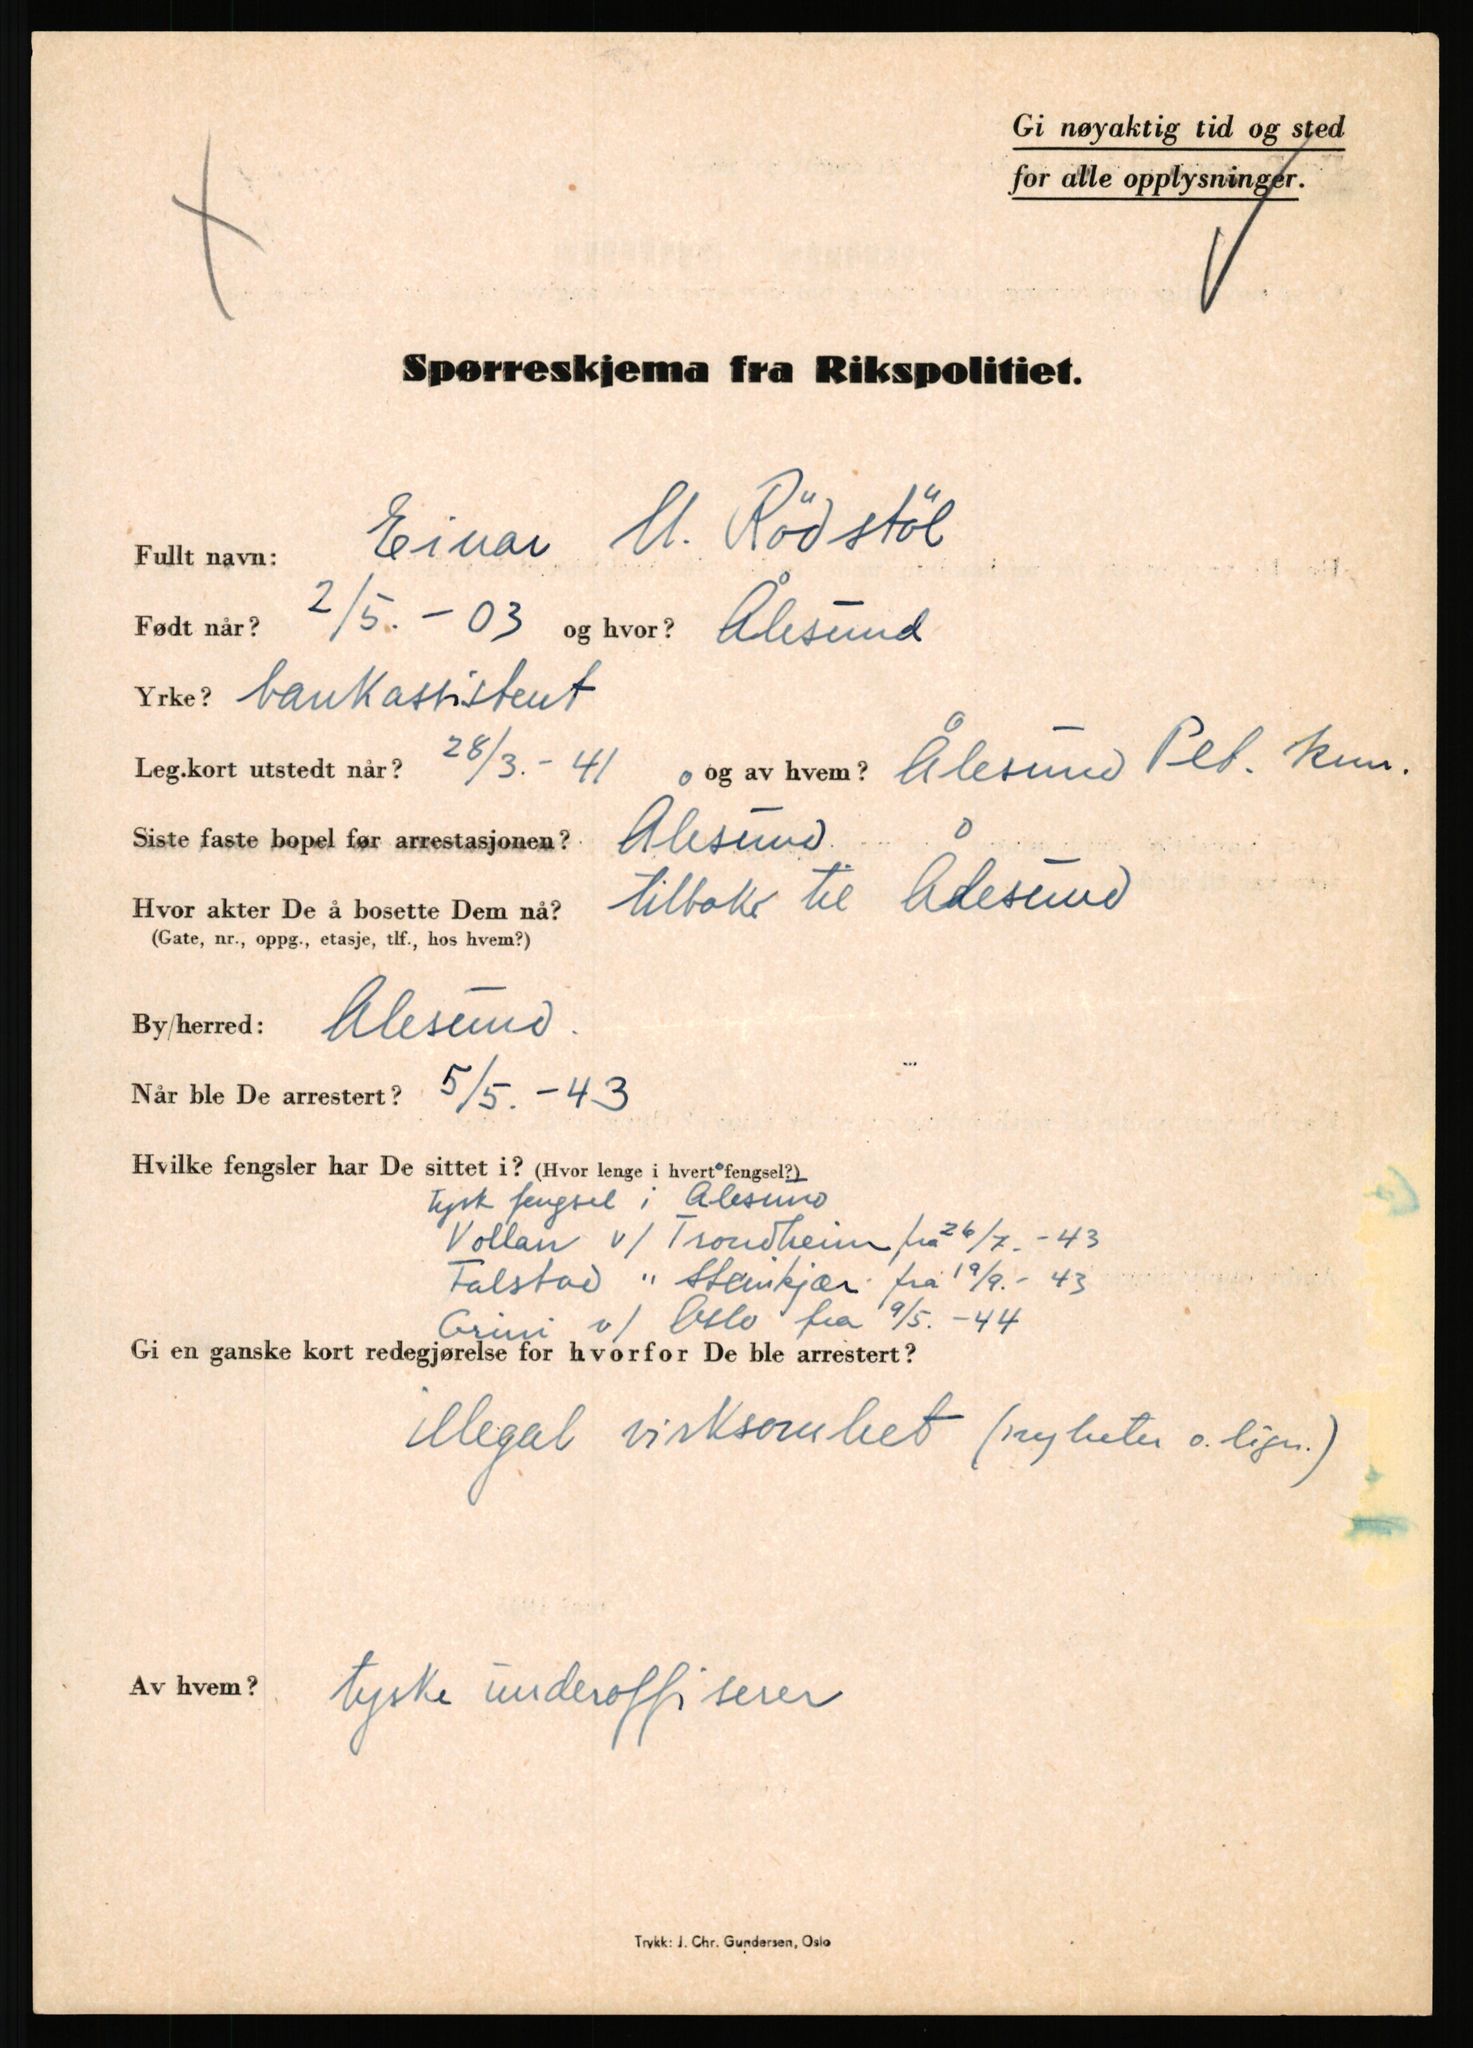 Gi nøyaktig tid og sted
for alle opplysninger.
Spørreskjema fra Rikspolitiet.
Fullt navn: Einar M. Rödstöl
Født når? 2/5. - 03 og hvor? Ålesund
Yrke? bankassistent
Leg.kort utstedt når? 28/3. - 41 og av hvem? Ålesund
Siste faste bopel før arrestasjonen? Ålesund
Hvor akter De å bosette Dem nå? tilbake til Ålesund
(Gate, nr., oppg., etasje, tlf., hos hvem?)
By/herred: Alesund.
Når ble De arrestert? 5/5. - 43
Hvilke fengsler har De sittet i? (Hvor lenge i hvert fengsel?)
tysk fengsel i Ålesund
Vollan v/ Trondheim fra 26/7. - 43
Falstad " Steinkjær fra 19/9. - 43
Grini v/ Oslo fra 9/5. - 44
Gi en ganske kort redegjørelse for hvorfor De ble arrestert?
illegal virksomhet (nyheter o. lign.)
Av hvem? tyske underoffiserer
Trykk: J. Chr. Gundersen, Oslo